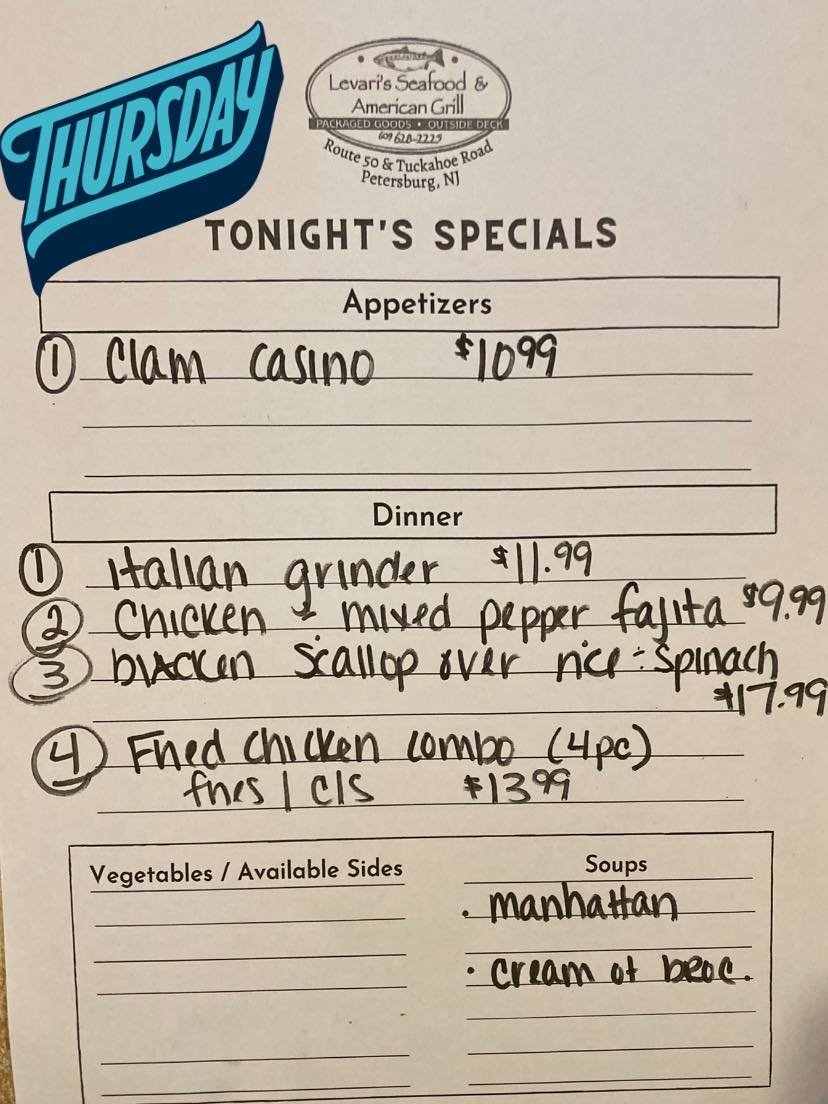 THURSDAY
Levari's Seafood &
American Grill
PACKAGED GOODS • OUTSIDE DECK
609 628-2225
Route 50 & Tuckahoe Road
Petersburg, NJ
TONIGHT'S SPECIALS
Appetizers
1 Clam casino $1099
Dinner
1 Italian grinder $11.99
2 Chicken + mixed pepper fajita $9.99
3 blacken scallop over rice + spinach
$17.99
4 Fried chicken combo (4pc)
fries | c/s $1399
Vegetables / Available Sides
Soups
• manhattan
• cream of broc.